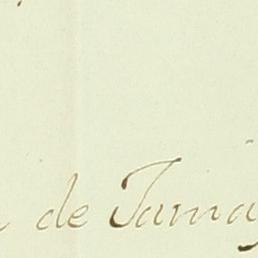 de Tamay